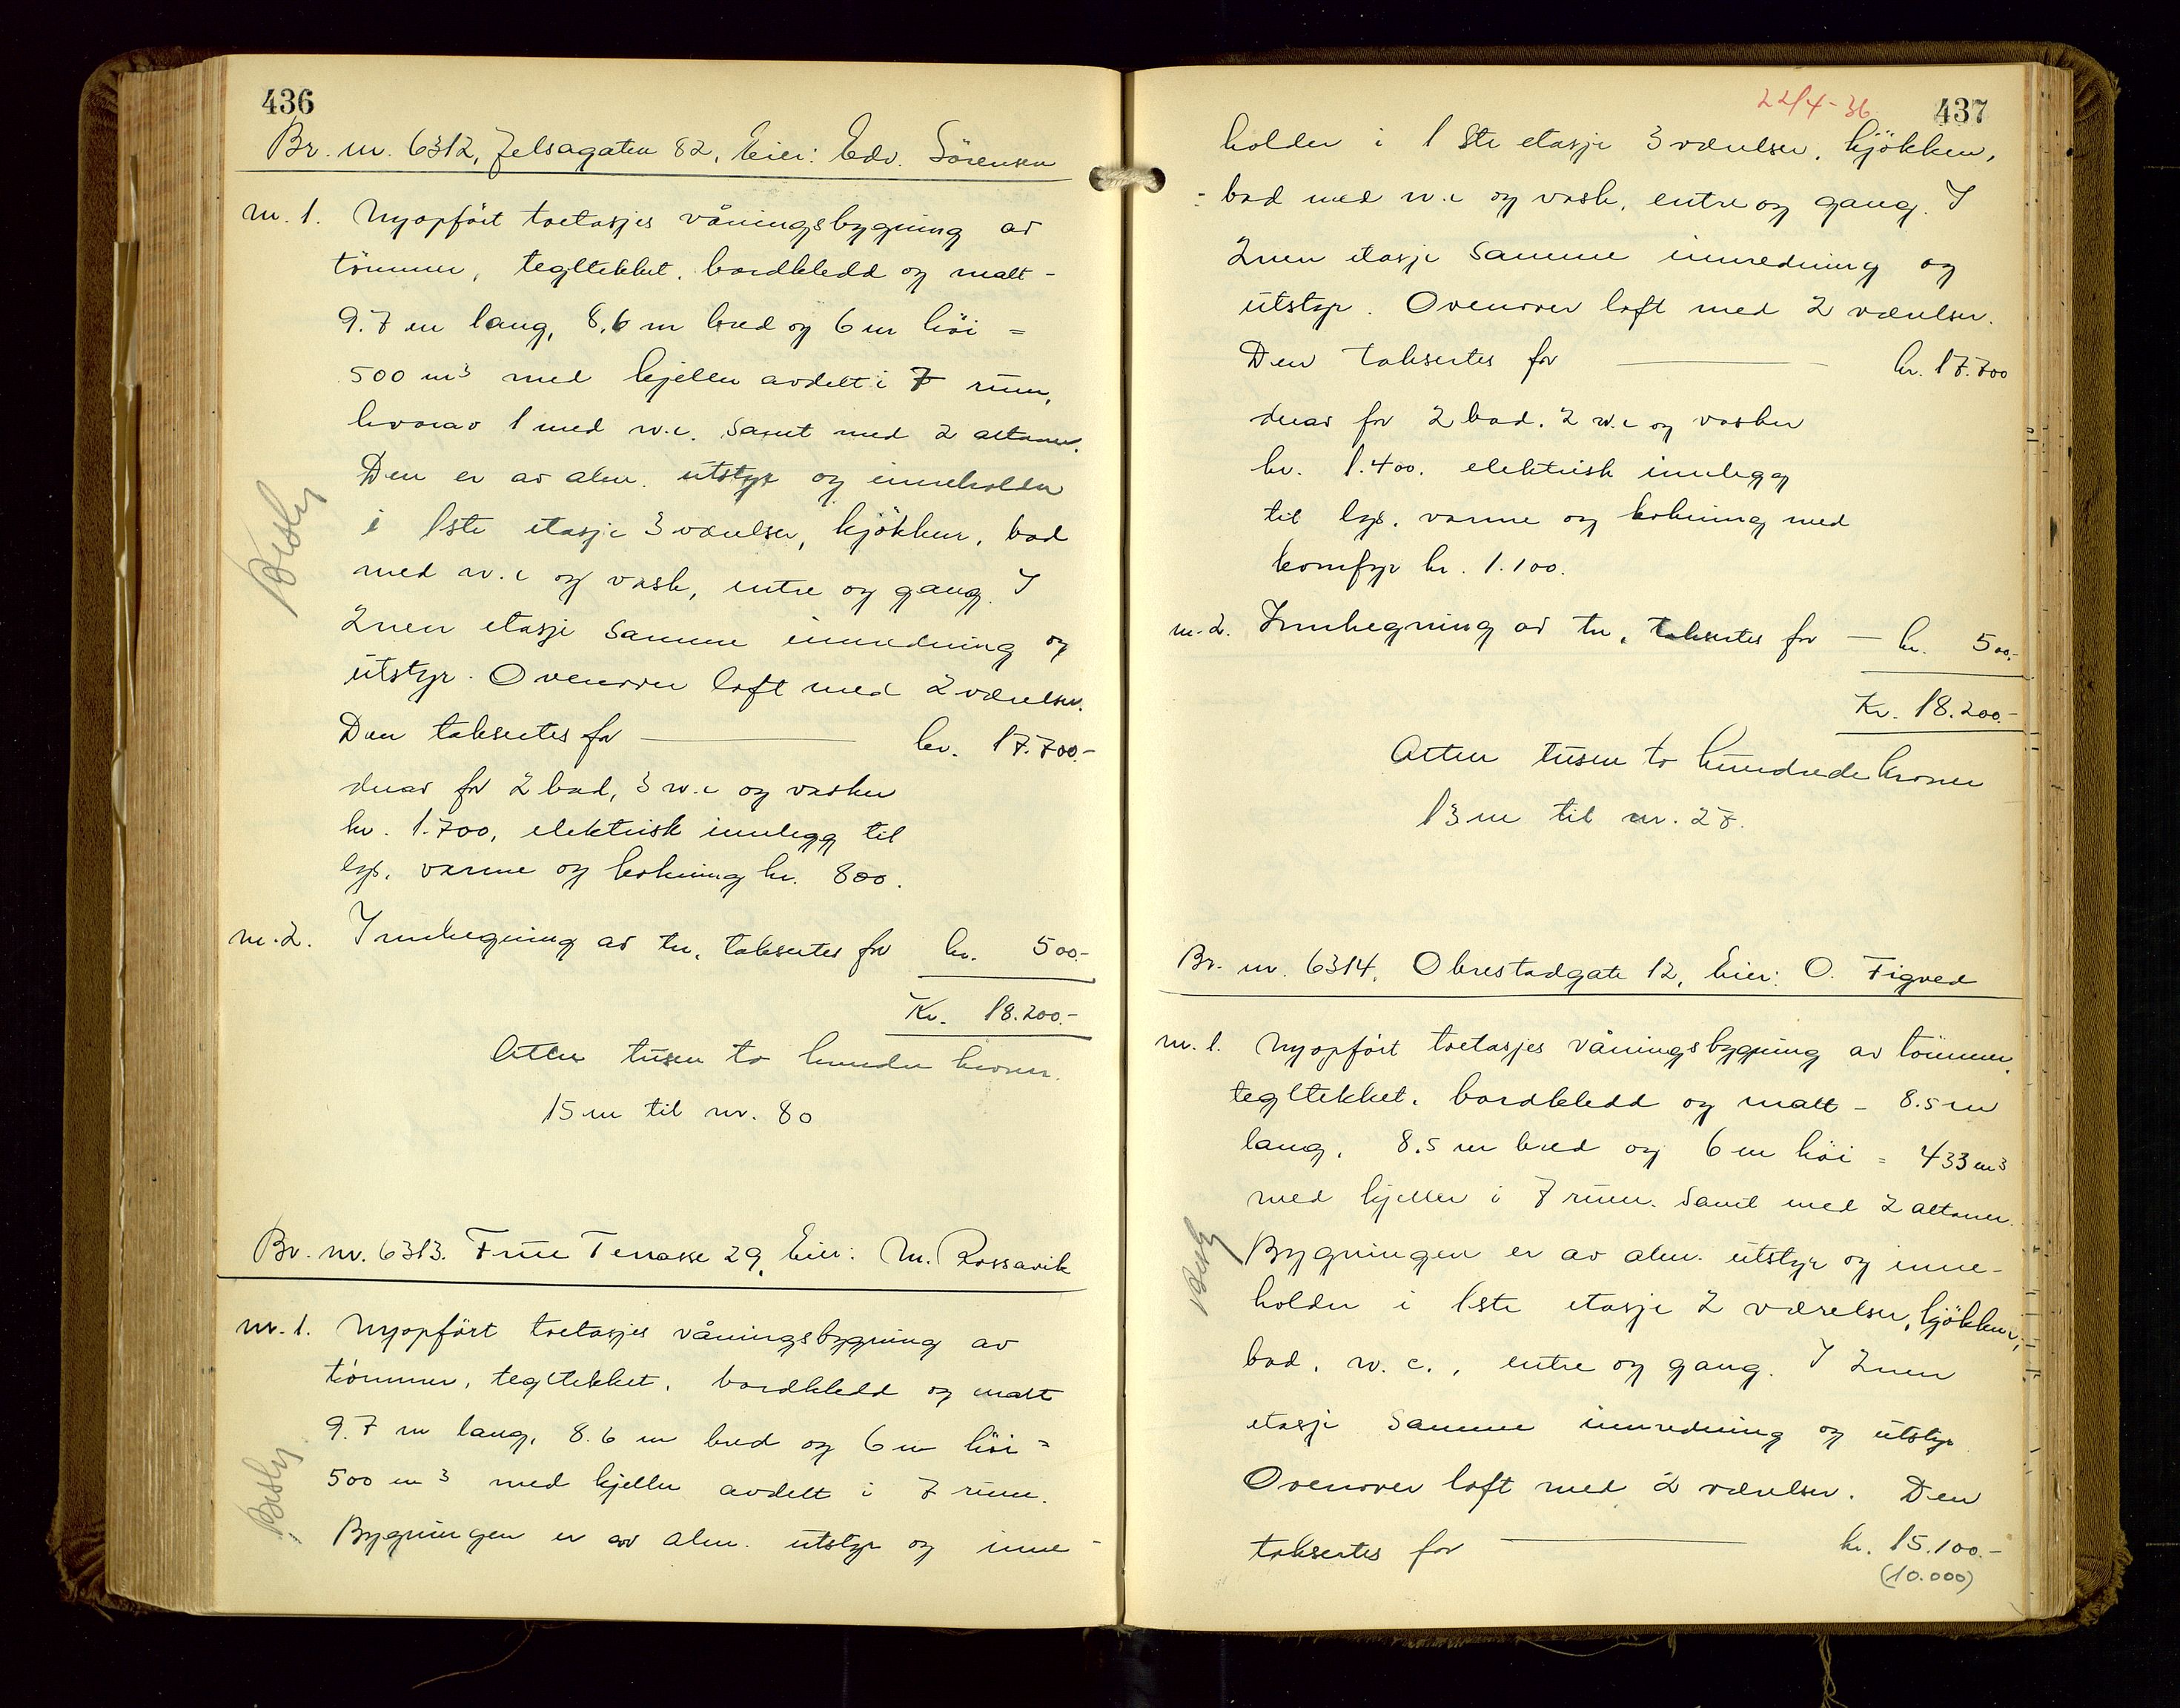 436
Br. nr. 6312, Jelsagaten 82, Eier: Edv. Sörensen
nr. 1. Nyopfört toetasjes våningsbygning av
tömmer, tegltekket, bordkledd og malt -
9.7 m lang, 8,6 m bred og 6 m höi =
500 m³ med kjeller avdelt i 7 rum,
hvorav 1 med w.c. samt med 2 altaner.
Den er av alm. utstyr og inneholder
i 1ste etasje 3 værelser, kjökken, bad
med w.c og vask, entre og gang. I
2nen etasje samme innredning og
utstyr. Ovenover loft med 2 værelser.
Den taksertes for kr. 17.700.-
derav for 2 bad, 3 w.c og vasker
kr. 1.700, elektrisk innlegg til
lys, varme og kokning kr. 800.
nr. 2. Innhegning av tre, taksertes for kr. 500.-
Kr. 18.200.-
Atten tusen to hundre kroner.
15 m til nr. 80
Besikt
Br. nr. 6313. Frue Terrasse 29, Eier: M. Rossavik
nr. 1. Nyopfört toetasjes våningsbygning av
tömmer, tegltekket, bordkledd og malt
9.7 m lang, 8.6 m bred og 6 m höi =
500 m³ med kjeller avdelt i 7 rum.
Bygningen er av alm. utstyr og inne-
22/4-36
437
holder i 1ste etasje 3 værelser, kjökken,
bad med w.c og vask, entre og gang. I
2nen etasje samme innredning og
utstyr. Ovenover loft med 2 værelser.
Den taksertes for kr. 17.700
derav for 2 bad, 2 w.c og vasker
kr. 1.400, elektrisk innlegg
til lys, varme og kokning med
komfyr kr. 1.100.
nr. 2. Innhegning av tre, taksertes for - kr. 500.-
Kr. 18.200.-
Atten tusen to hundrede kroner
13 m til nr. 27.
Br. nr. 6314, Obrestadgate 12, Eier: O. Figved
nr. 1. Nyopfört toetasjes våningsbygning av tömmer,
tegltekket, bordkledd og malt - 8.5 m
lang, 8.5 m bred og 6 m höi = 433 m³
med kjeller i 7 rum. samt med 2 altaner.
Bygningen er av alm. utstyr og inne-
holder i 1ste etasje 2 værelser, kjökken,
bad, w.c., entre og gang. I 2nen
etasje samme innredning og utstyr
Ovenover loft med 2 værelser. Den
taksertes for kr. 15.100.-
(10.000)